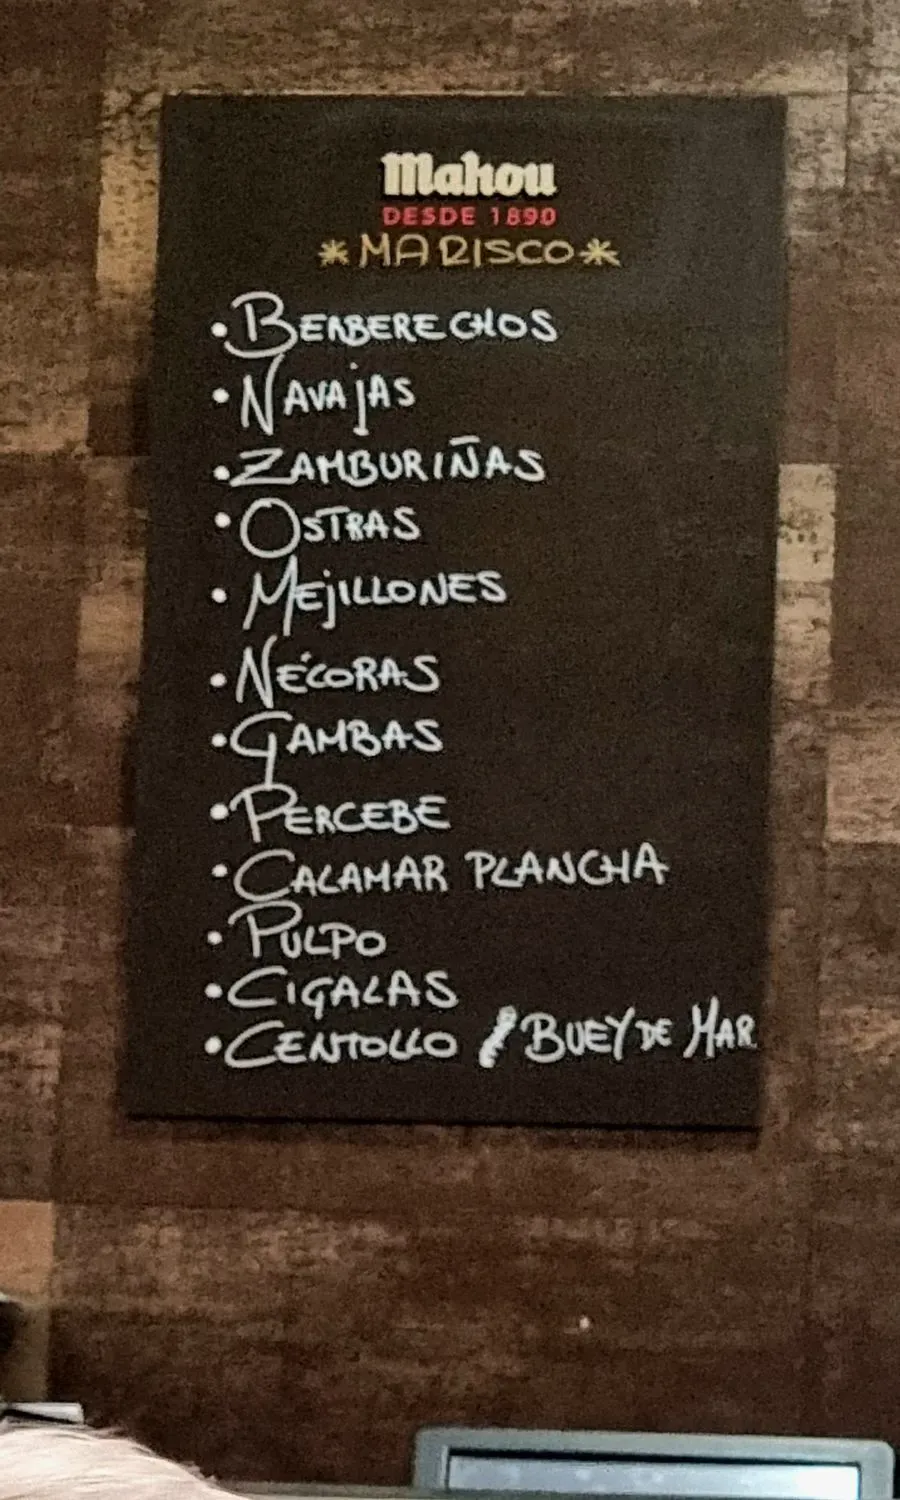 Mahou
DESDE 1890
*MARISCO*
• BERBERECHOS
• NAVAJAS
• ZAMBURIÑAS
• OSTRAS
• MEJILLONES
• NÉCORAS
• GAMBAS
• PERCEBE
• CALAMAR PLANCHA
• PULPO
• CIGALAS
• CENTOLLO / BUEY DE MAR